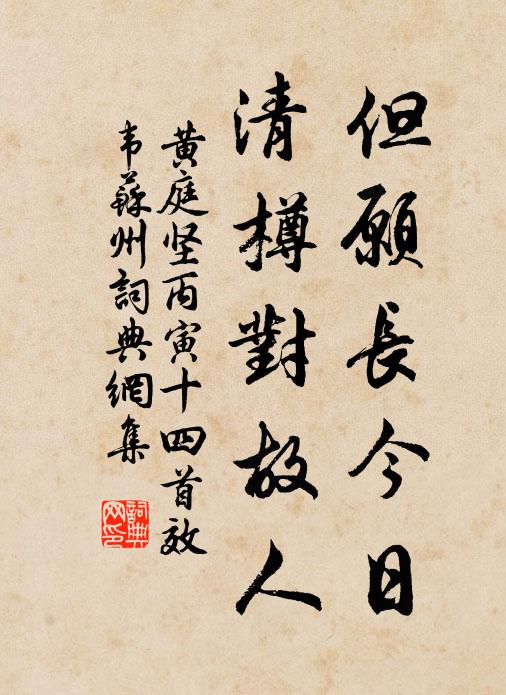 但願長今日
清樽對故人
黄庭坚丙寅十四首效
韦蘇州詞典網集
詞典网印